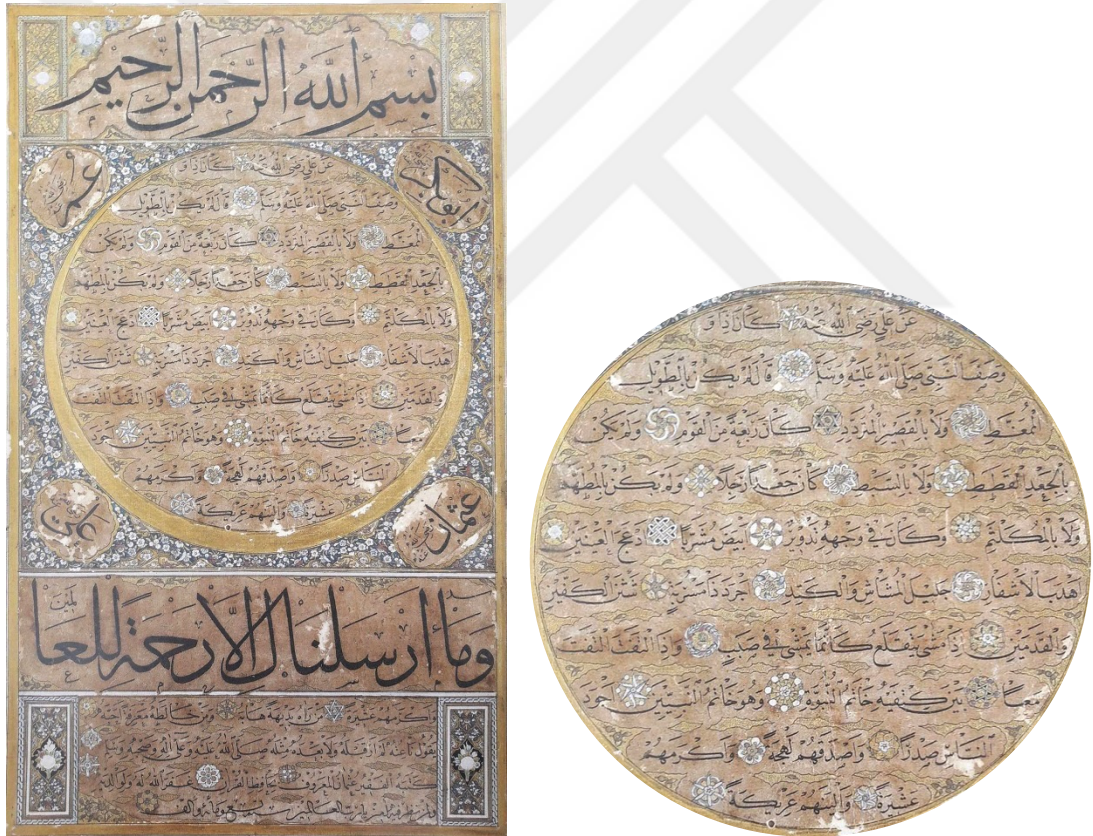 بسم الله الرحمن الرحيم
ابوبكر
عمر
عن علي رضي الله عنه كان اذا و
وصف النبي صلى الله عليه وسلم قال لم يكن بالطويل
الممغط ولا بالقصير المتردد كان ربعة من القوم ولم يكن
بالجعد القطط ولا بالسبط كان جعدا رجلا ولم يكن بالمطهم
ولا بالمكلثم وكان في وجهه تدوير ابيض مشربا ادعج العينين
هدب الاشفار جليل المشاش والكتد اجرد ذا مسربة شثن الكفين
والقدمين اذا مشى يتقلع كانما يمشي في صبب واذا التفت التفت
معا بين كتفيه خاتم النبوة وهو خاتم النبيين اجود
الناس صدرا واصدقهم لهجة واكرمهم
عشيرة والينهم عريكة
عثمان
علي
وما ارسلناك الا رحمة للعالمين
واكرمهم عشيرة من رآه بديهة هابه ومن خالطه معرفة احبه
يقول ناعته لم ار قبله ولا بعده مثله صلى الله عليه وعلى آله وصحبه وسلم
كتبه الفقير عثمان المعروف بحافظ القرآن غفر الله له ولوالديه
ومائة والف
عن علي رضي الله عنه كان اذا و
وصف النبي صلى الله عليه وسلم قال لم يكن بالطويل
الممغط ولا بالقصير المتردد كان ربعة من القوم ولم يكن
بالجعد القطط ولا بالسبط كان جعدا رجلا ولم يكن بالمطهم
ولا بالمكلثم وكان في وجهه تدوير ابيض مشربا ادعج العينين
هدب الاشفار جليل المشاش والكتد اجرد ذا مسربة شثن الكفين
والقدمين اذا مشى يتقلع كانما يمشي في صبب واذا التفت التفت
معا بين كتفيه خاتم النبوة وهو خاتم النبيين اجود
الناس صدرا واصدقهم لهجة واكرمهم
عشيرة والينهم عريكة